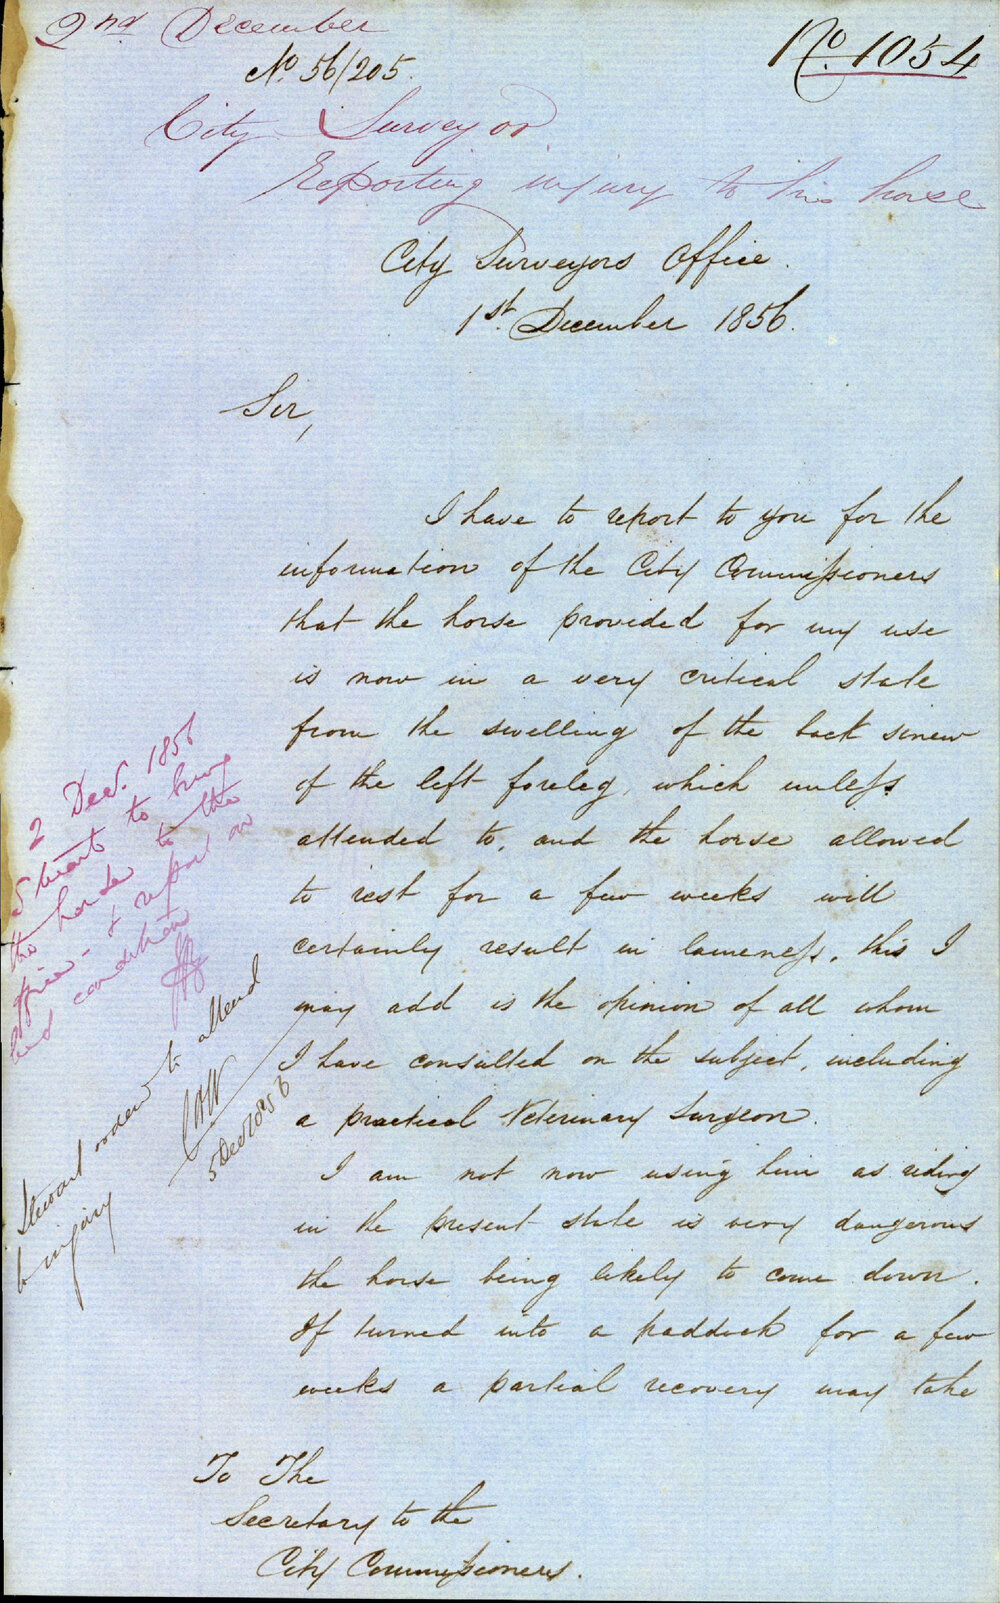 2nd December
No. 56/205.
No. 1054
City Surveyor
Reporting injury to his horse
City Surveyors Office.
1st. December 1856.
Sir,
I have to report to you for the
information of the City Commissioners
that the horse provided for my use
is now in a very critical state
from the swelling of the back sinew
of the left foreleg, which unless
attended to, and the horse allowed
to rest for a few weeks will
certainly result in lameness, this I
may add is the opinion of all whom
I have consulted on the subject, including
a practical Veterinary Surgeon.
I am not now using him as riding
in the present state is very dangerous
the horse being likely to come down.
If turned into a paddock for a few
weeks a partial recovery may take
To The
Secretary to the
City Commissioners.
2 Decr. 1856
Stewart to bring
the horse to the
office - & report on
condition
Stewart orden to attend
to injury
5 Dec 1856